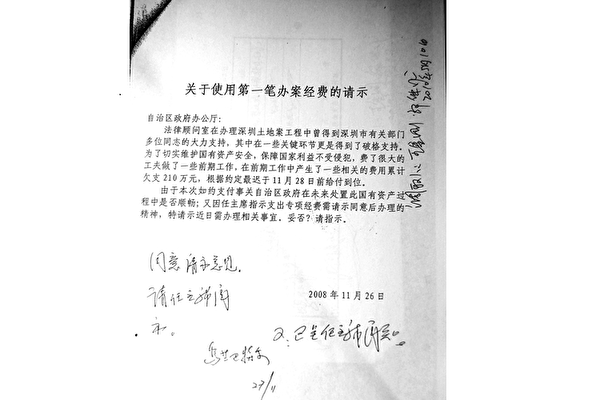 关于使用第一笔办案经费的请示
自治区政府办公厅：
法律顾问室在办理深圳土地案工程中曾得到深圳市有关部门
多位同志的大力支持，其中在一些关键环节更是得到了破格支持。
为了切实维护国有资产安全，保障国家利益不受侵犯，费了很大的
工夫做了一些前期工作，在前期工作中产生了一些相关的费用累计
欠支 210 万元，根据约定最迟于 11 月 28 日前给付到位。
由于本次如约支付事关自治区政府在未来处置此国有资产过
程中是否顺畅；又因任主席指示支出专项经费需请示同意后办理的
精神，特请示近日需办理相关事宜，妥否？请指示。
2008 年 11 月 26 日
同意请示意见，
请任主席阅
示。
27/11